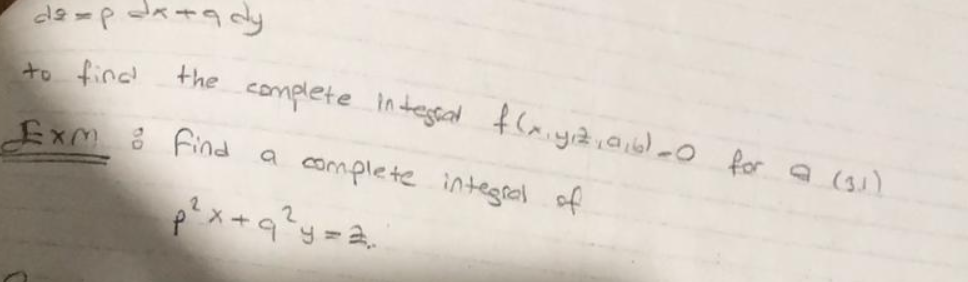 dz = p dx + q dy
to find the complete integral f(x,y,z,a,b)=0 for a (3.1)
Exm : find a complete integral of
p²x + q²y = z.